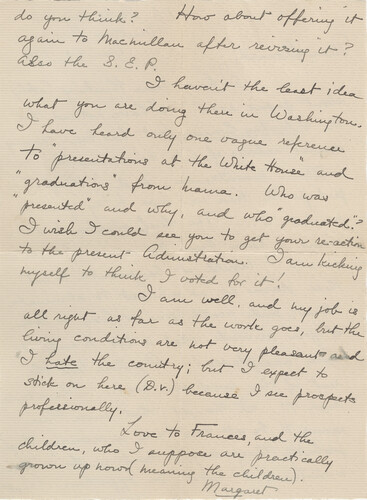 do you think? How about offering it
again to Macmillan after revising it?
Also the S.E.P.
I haven't the least idea
what you are doing there in Washington.
I have heard only one vague reference
to "presentations at the White House" and
"graduations" from mama. Who was
"presented" and why, and who "graduated"?
I wish I could see you to get your re-action
to the present Adminstration. I am kicking
myself to think I voted for it!
I am well, and my job is
all right as far as the work goes, but the
living conditions are not very pleasant and
I hate the country; but I expect to
stick on here (D.V.) because I see prospects
professionally.
Love to Frances, and the
children, who I suppose are practically
grown up now (meaning the children).
Margaret